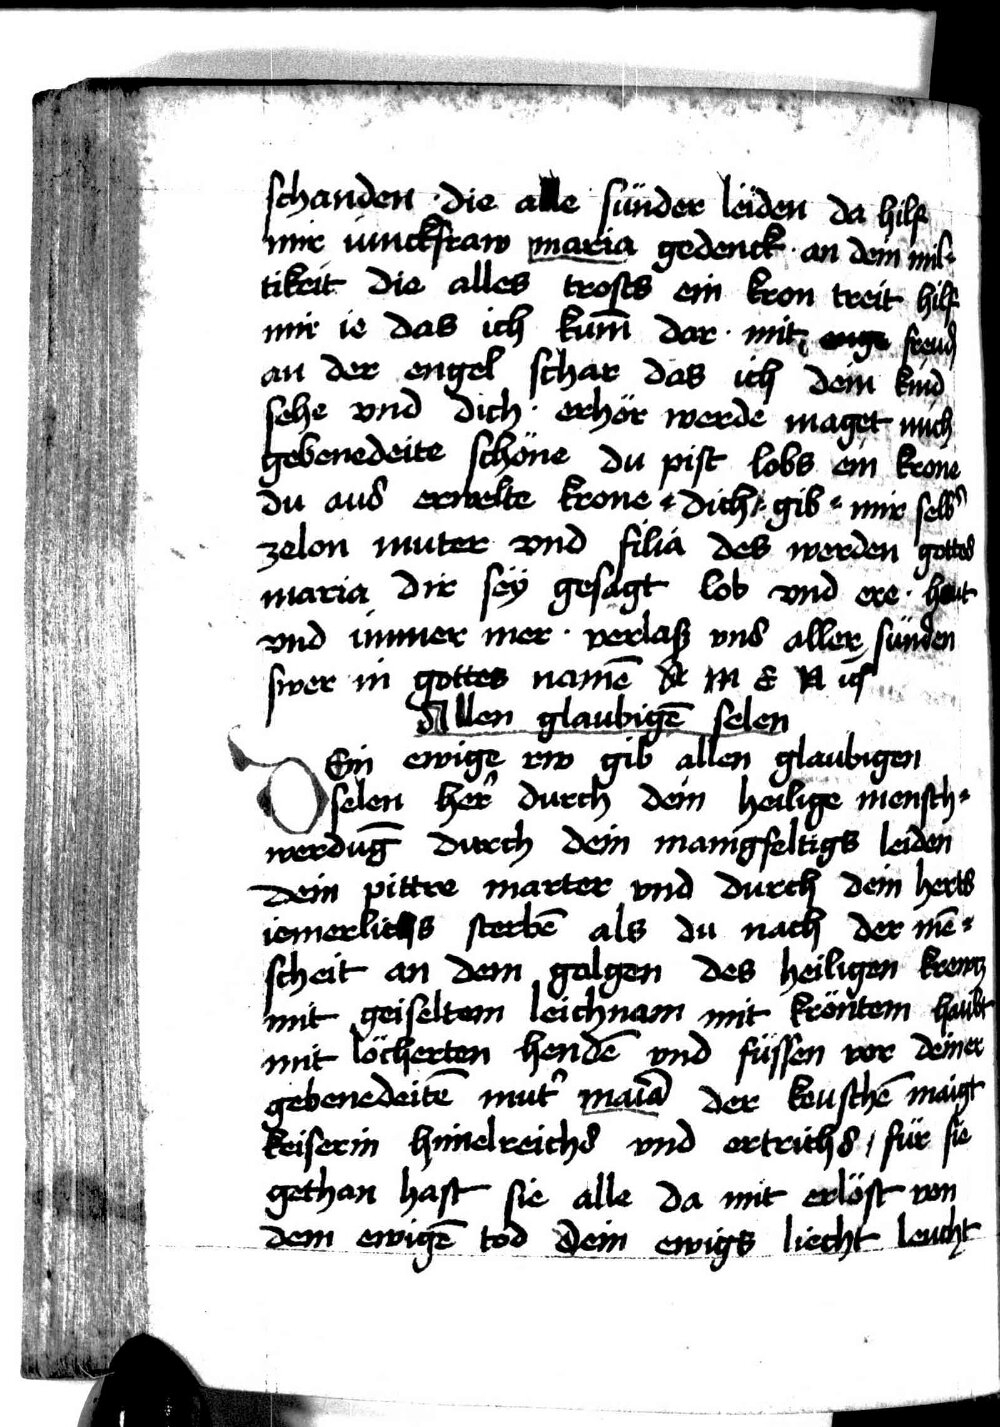 schanden · die alle sünder leiden da hilf
mir iunckfraw maria gedenck · an dein mil-
tikeit die alles trosts ein kron treit hilf
mir ie das ich kum̄ dar · mit enge
an der engel schar das ich dein kind
sehe vnd dich · erhör werde maget mich
gebenedeite schöne du pist lobs ein krone
du aus erwelte krone · dich · gib · mir
zelon muter vnd filia des werden gottes
maria dir sey gesagt lob vnd ere · heut
vnd immer mer · verlaß vns aller sünden
swer in gottes namē
Allen glaubigē selen
Ein ewige rw gib allen glaubigen
selen her durch dein heilige mensch-
werdūg durch dein manigfeltigs leiden
dein pittre marter vnd durch dein herts
iemerlichs sterbē als du nach der mē-
scheit an dem galgen des heiligen kreutz
mit geiseltem leichnam mit kröntem haubt
mit löcherten hendē vnd füssen vor deiner
gebenedeitē mut' maīa der keuschē maigt
keiserin himelreichs vnd ertrichs / für sie
gethan hast sie alle da mit erlöst von
dem ewigē tod Dein ewigs liecht leucht